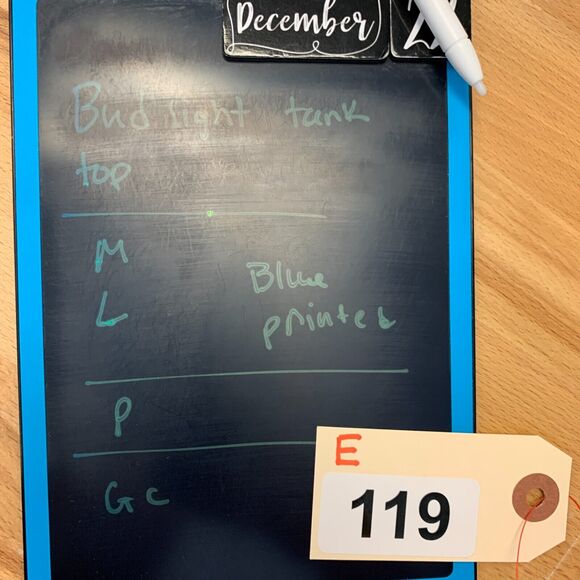 December
Bud light tank
top
M
L
Blue
printed
P
Gc
E
119